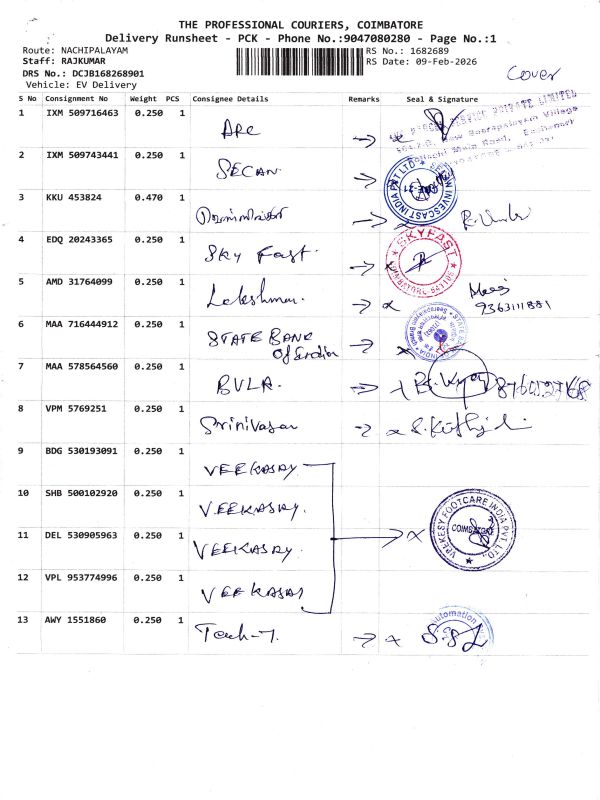 THE PROFESSIONAL COURIERS, COIMBATORE
Delivery Runsheet - PCK - Phone No.:9047080280 - Page No.:1
Route: NACHIPALAYAM RS No.: 1682689
Staff: RAJKUMAR RS Date: 09-Feb-2026
DRS No.: DCJB168268901
Vehicle: EV Delivery
Cover
S No Consignment No Weight PCS Consignee Details Remarks Seal & Signature
1 IXM 509716463 0.250 1 ARC
2 IXM 509743441 0.250 1 SECAN
3 KKU 453824 0.470 1
4 EDQ 20243365 0.250 1 Sky Fast. SKYFAST
5 AMD 31764099 0.250 1 Lakshman 9363111881
6 MAA 716444912 0.250 1 STATE BANK
Of India
7 MAA 578564560 0.250 1 BVLA.
8 VPM 5769251 0.250 1 Srinivasan
9 BDG 530193091 0.250 1 VEEKASAY
10 SHB 500102920 0.250 1 VEEKASAY. VEEKESY FOOTCARE INDIA PVT. LTD. COIMBATORE
11 DEL 530905963 0.250 1 VEEKASAY.
12 VPL 953774996 0.250 1 VEEKASAY
13 AWY 1551860 0.250 1 Tech-7. Automation